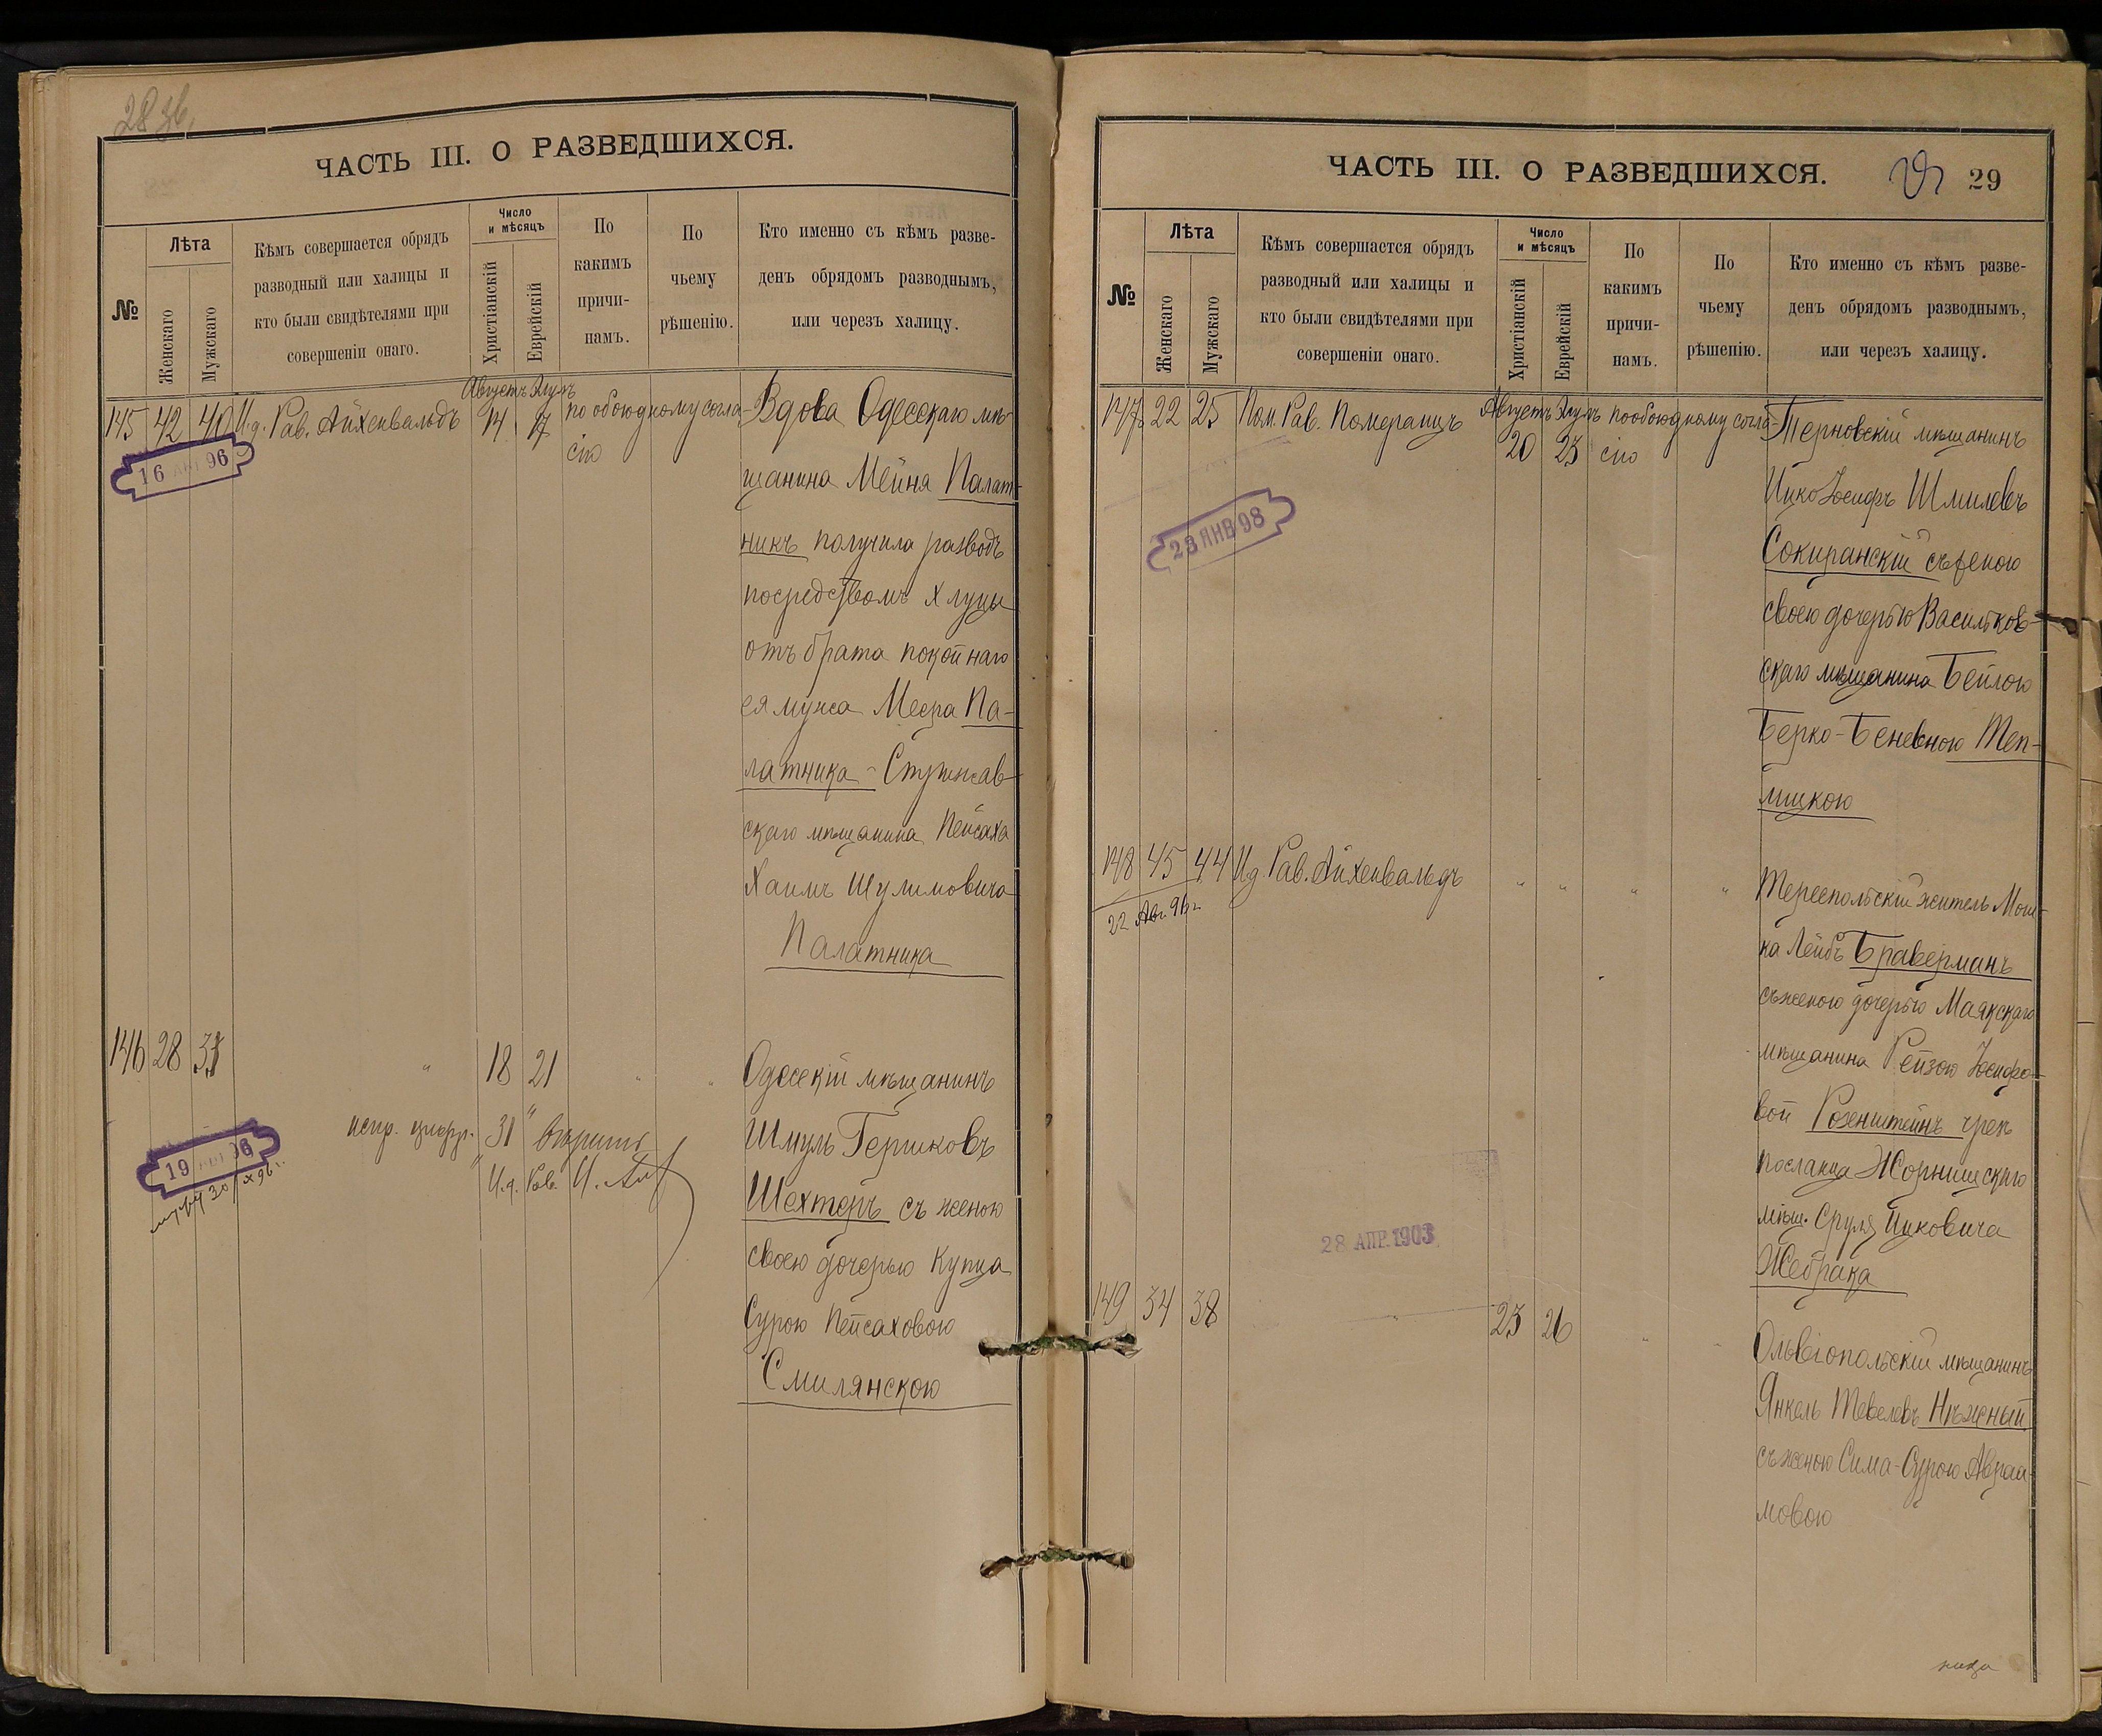 28 зв.
ЧАСТЬ III. О РАЗВЕДШИХСЯ.
№
Лѣта
Женскаго
Мужскаго
Кѣмъ совершается обрядъ
разводный или халицы и
кто были свидѣтелями при
совершеніи онаго.
Число
и мѣсяцъ
Христіанскій
Еврейскій
По
какимъ
причи-
намъ.
По
чьему
рѣшенію.
Кто именно съ кѣмъ разве-
денъ обрядомъ разводнымъ,
или черезъ халицу.
Августъ Элулъ
145 42 40 И.д. Рав. Айхенвальдъ 14 17 по обоюдному согла-
сію
16 АВГ 96
Вдова Одесскаго мѣ-
щанина Мейня Палат-
никъ получила разводъ
посредствомъ хлуцы
отъ брата покойнаго
ея мужа Меера Па-
латника - Стржав-
скаго мѣщанина Пейсаха
Хаимъ Шулимовича
Палатника
146 28 31 " 18 21 " "
испр. цифр. "31" вѣрить
И.д. Рав.
19 96
Одесскій мѣщанинъ
Шмуль Гершковъ
Шехтеръ съ женою
своею дочерью купца
Сурою Пейсаховою
Смилянскою
ЧАСТЬ III. О РАЗВЕДШИХСЯ.
29
№
Лѣта
Женскаго
Мужскаго
Кѣмъ совершается обрядъ
разводный или халицы и
кто были свидѣтелями при
совершеніи онаго.
Число
и мѣсяцъ
Христіанскій
Еврейскій
По
какимъ
причи-
намъ.
По
чьему
рѣшенію.
Кто именно съ кѣмъ разве-
денъ обрядомъ разводнымъ,
или черезъ халицу.
Августъ Элулъ
147 22 25 Пом. Рав. Померанцъ 20 23 по обоюдному согла-
сію
23 ЯНВ 98
Терновскій мѣщанинъ
Ицко Іосифъ Шмилевъ
Сокиранскій съ женою
своею дочерью Васильков-
скаго мѣщанина Бейлою
Берко-Беневною Теп-
лицкою
148 45 44 И.д. Рав. Айхенвальдъ " " " "
22 Авг. 96 г.
Тереспольскій житель Мош-
ка Лейбъ Браверманъ
съ женою дочерью Маякскаго
мѣщанина Рейзою Іосифо-
вой Розенштейнъ чрез
посланца Жорнищскаго
мѣщ. Сруля Ицковича
Жебрака
28 АПР. 1903
149 34 38 " 23 26 " "
Ольвіопольскій мѣщанинъ
Янкель Тевелевъ Нѣжный
съ женою Сима-Сурою Авраа-
мовою